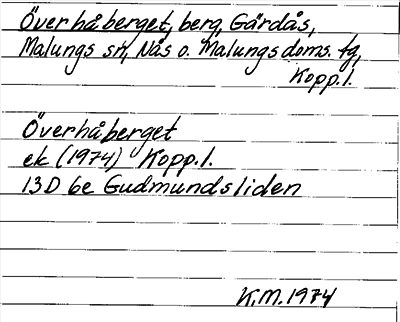 Överhåberget, berg, Gärdås,
Malungs sn, Nås o. Malungs doms. fg,
Kopp.l.
Överhåberget
ek (1974) Kopp.l.
13D 6e Gudmundsliden
K.M. 1974